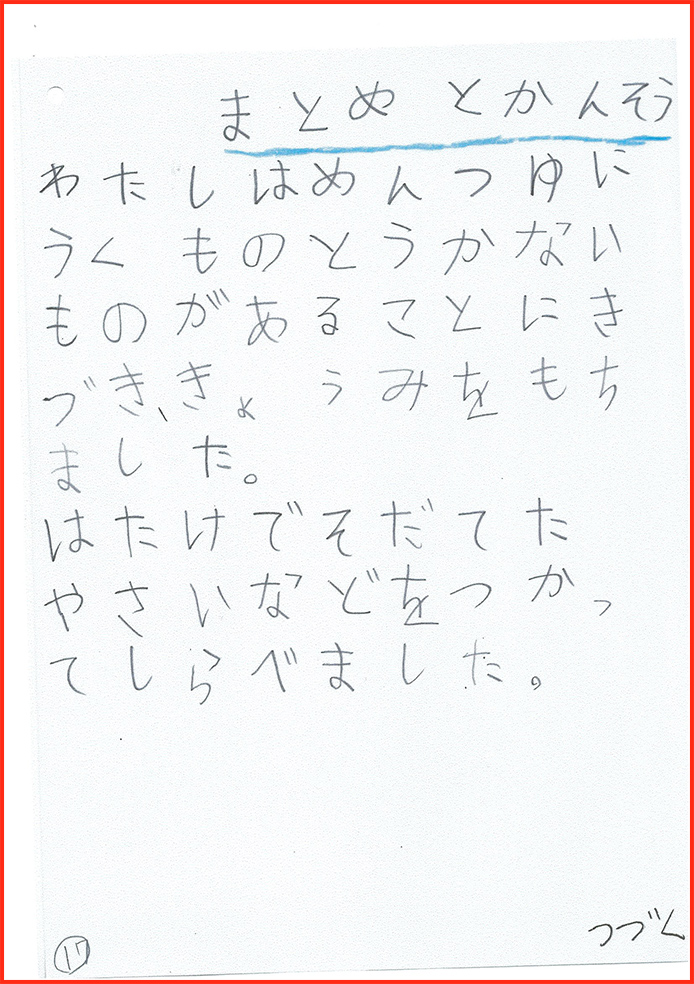 まとめ とかんそう
わたしはめんつゆに
うく ものとうかない
ものがあることにき
づき、きょうみをもち
ました。
はたけでそだてた
やさいなどをつかっ
てしらべました。
つづく
17